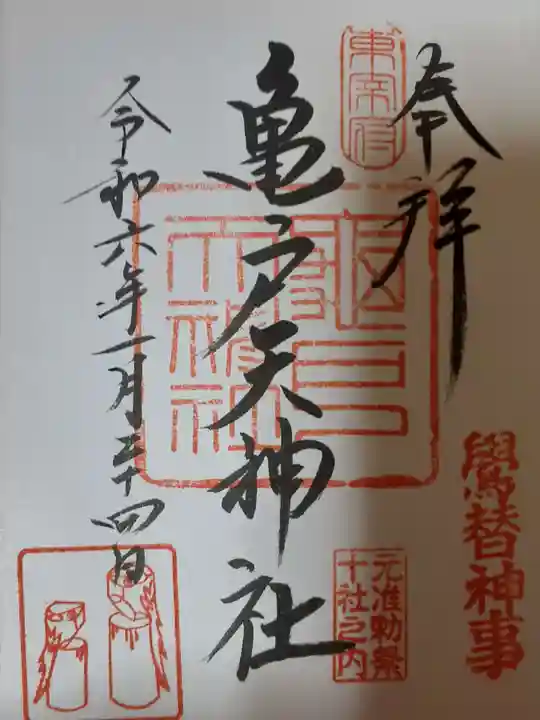 奉拝
東宰府
亀戸天神社
亀戸
天神社
令和六年一月二十四日
鷽替神事
元准勅祭
十社之内